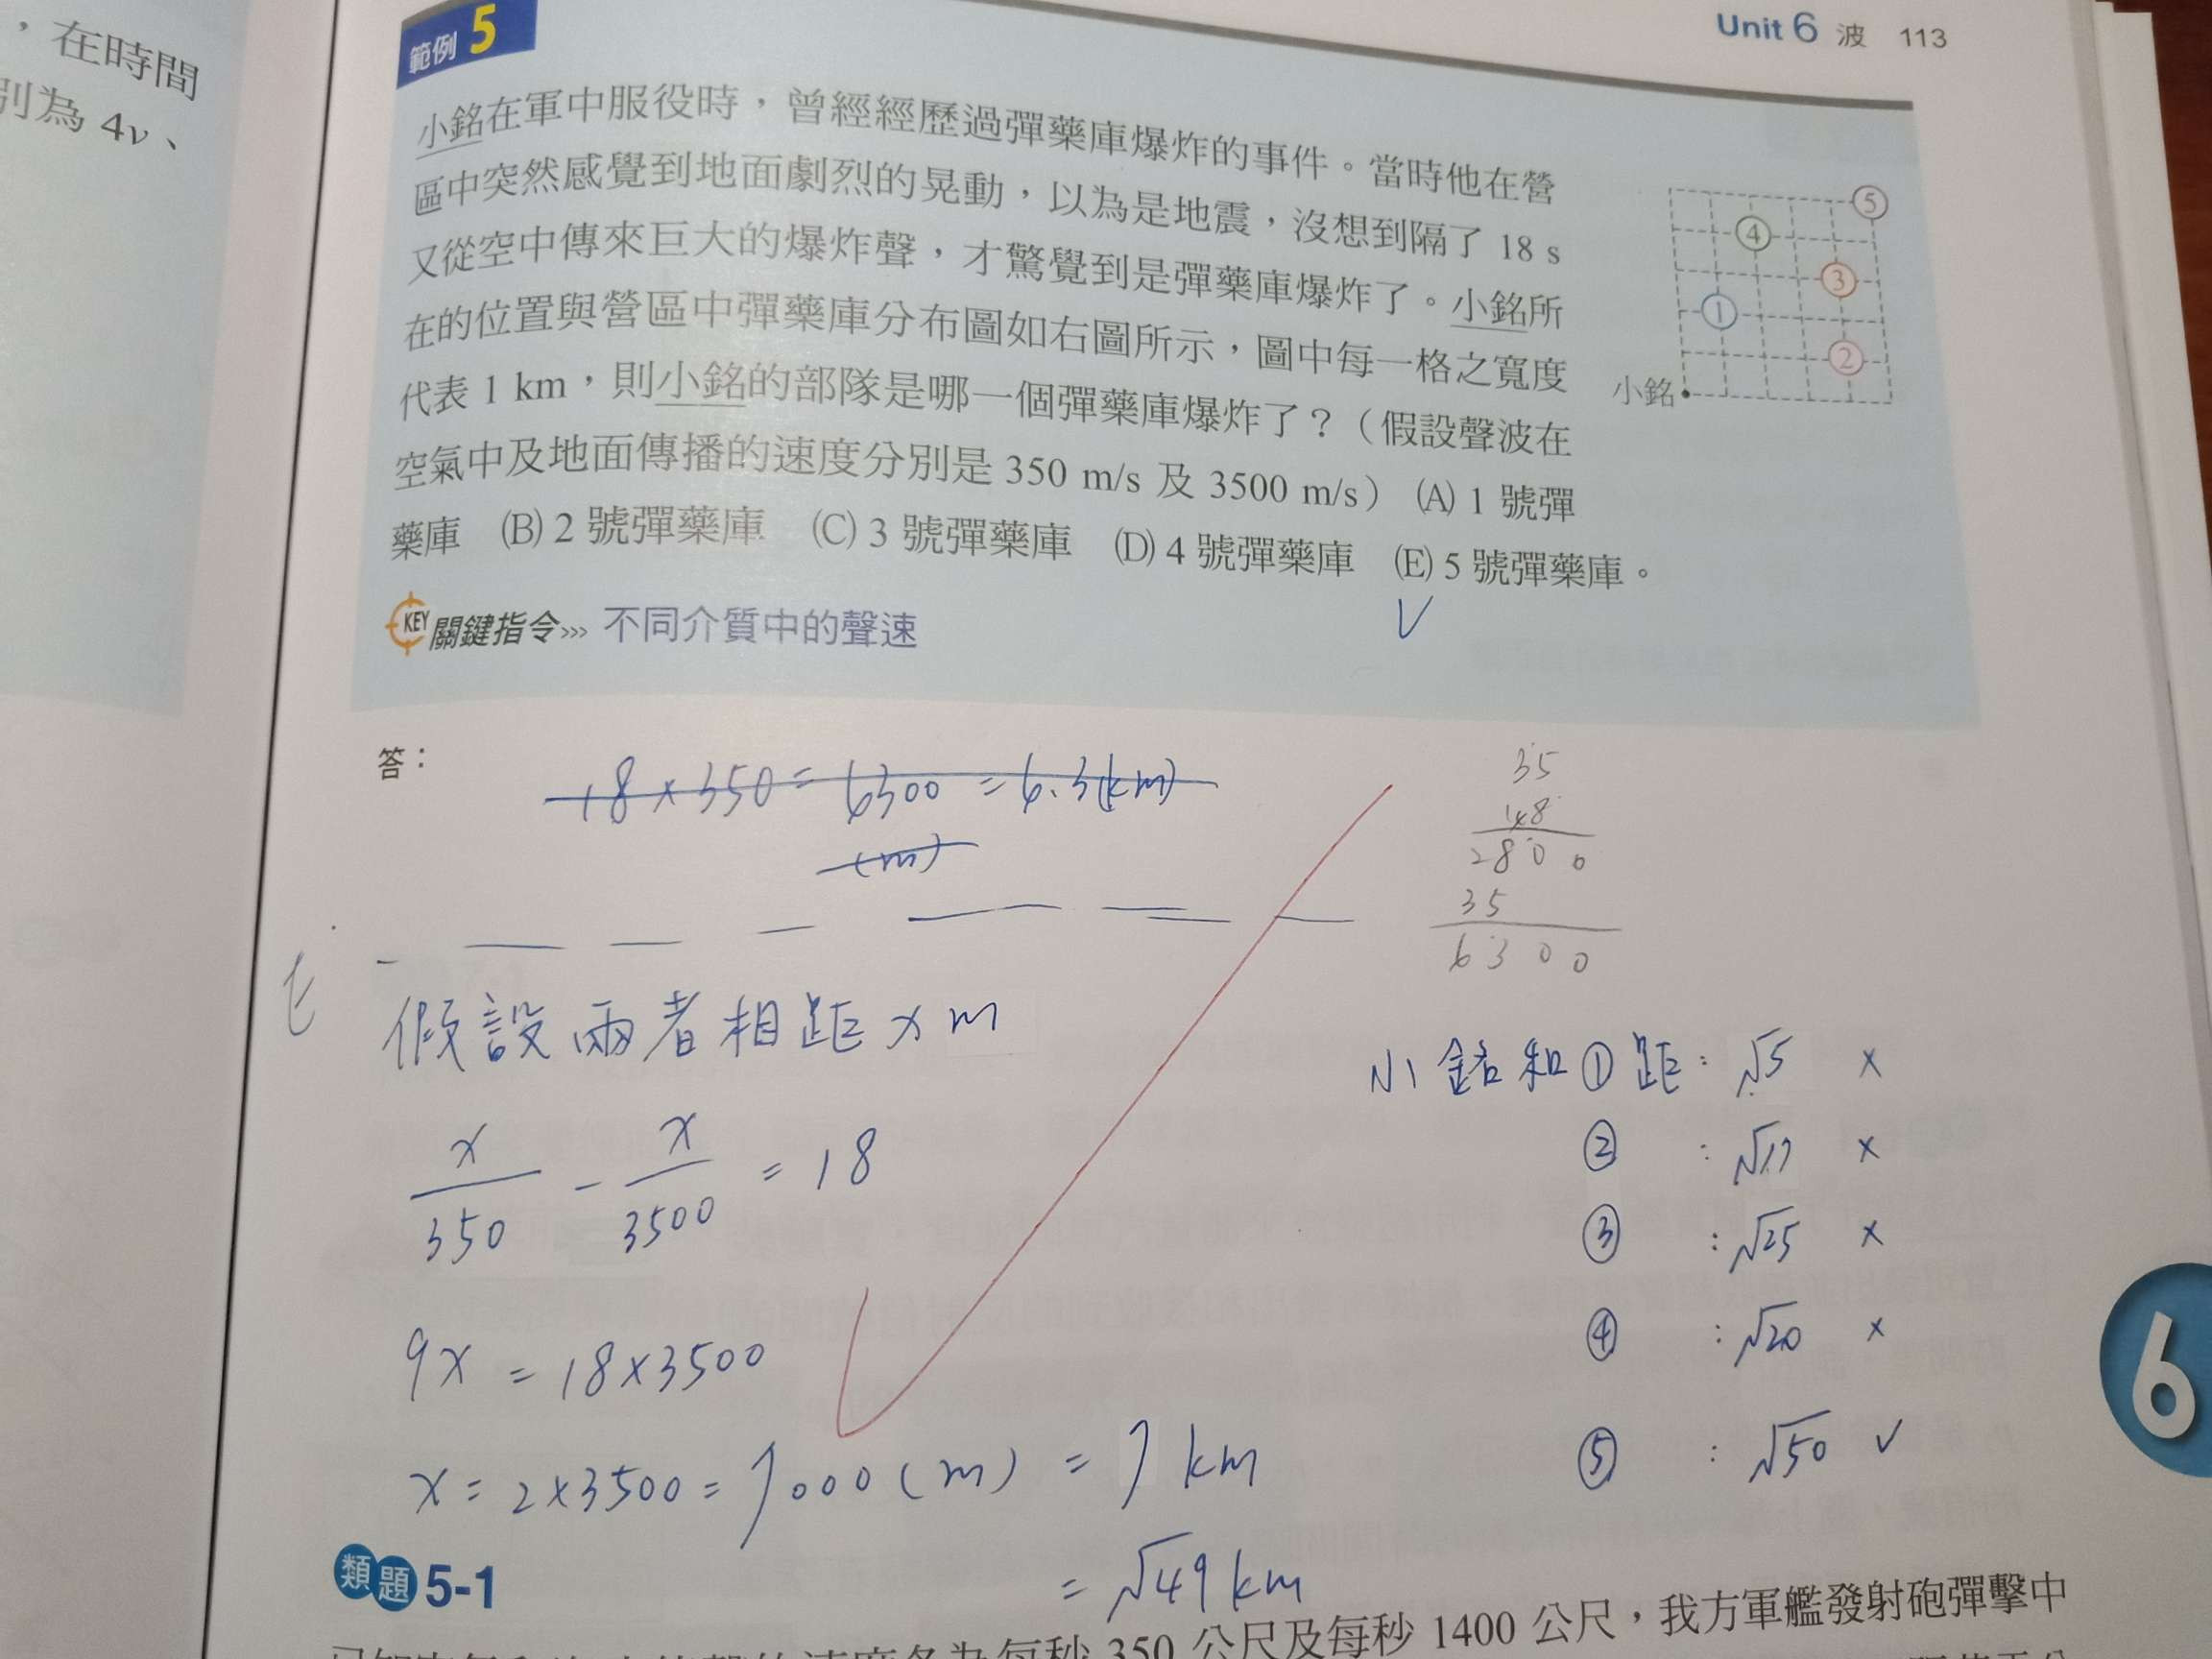 ，在時間
別為 4v、
Unit 6 波 113
範例 5
小銘在軍中服役時，曾經經歷過彈藥庫爆炸的事件。當時他在營
區中突然感覺到地面劇烈的晃動，以為是地震，沒想到隔了 18 s
又從空中傳來巨大的爆炸聲，才驚覺到是彈藥庫爆炸了。小銘所
在的位置與營區中彈藥庫分布圖如右圖所示，圖中每一格之寬度
代表 1 km，則小銘的部隊是哪一個彈藥庫爆炸了？（假設聲波在
空氣中及地面傳播的速度分別是 350 m/s 及 3500 m/s） (A) 1 號彈
藥庫 (B) 2 號彈藥庫 (C) 3 號彈藥庫 (D) 4 號彈藥庫 (E) 5 號彈藥庫。
⑤
④
③
①
②
小銘
KEY 關鍵指令>>> 不同介質中的聲速
答：
18×350=6300=6.3(km)
(m)
35
×18
2800
35
6300
假設兩者相距 x m
x/350 - x/3500 = 18
9x = 18×3500
x = 2×3500 = 7000(m) = 7 km
= √49 km
小銘和①距：√5 ×
②：√17 ×
③：√25 ×
④：√20 ×
⑤：√50 ✓
6
類題 5-1
350 公尺及每秒 1400 公尺，我方軍艦發射砲彈擊中